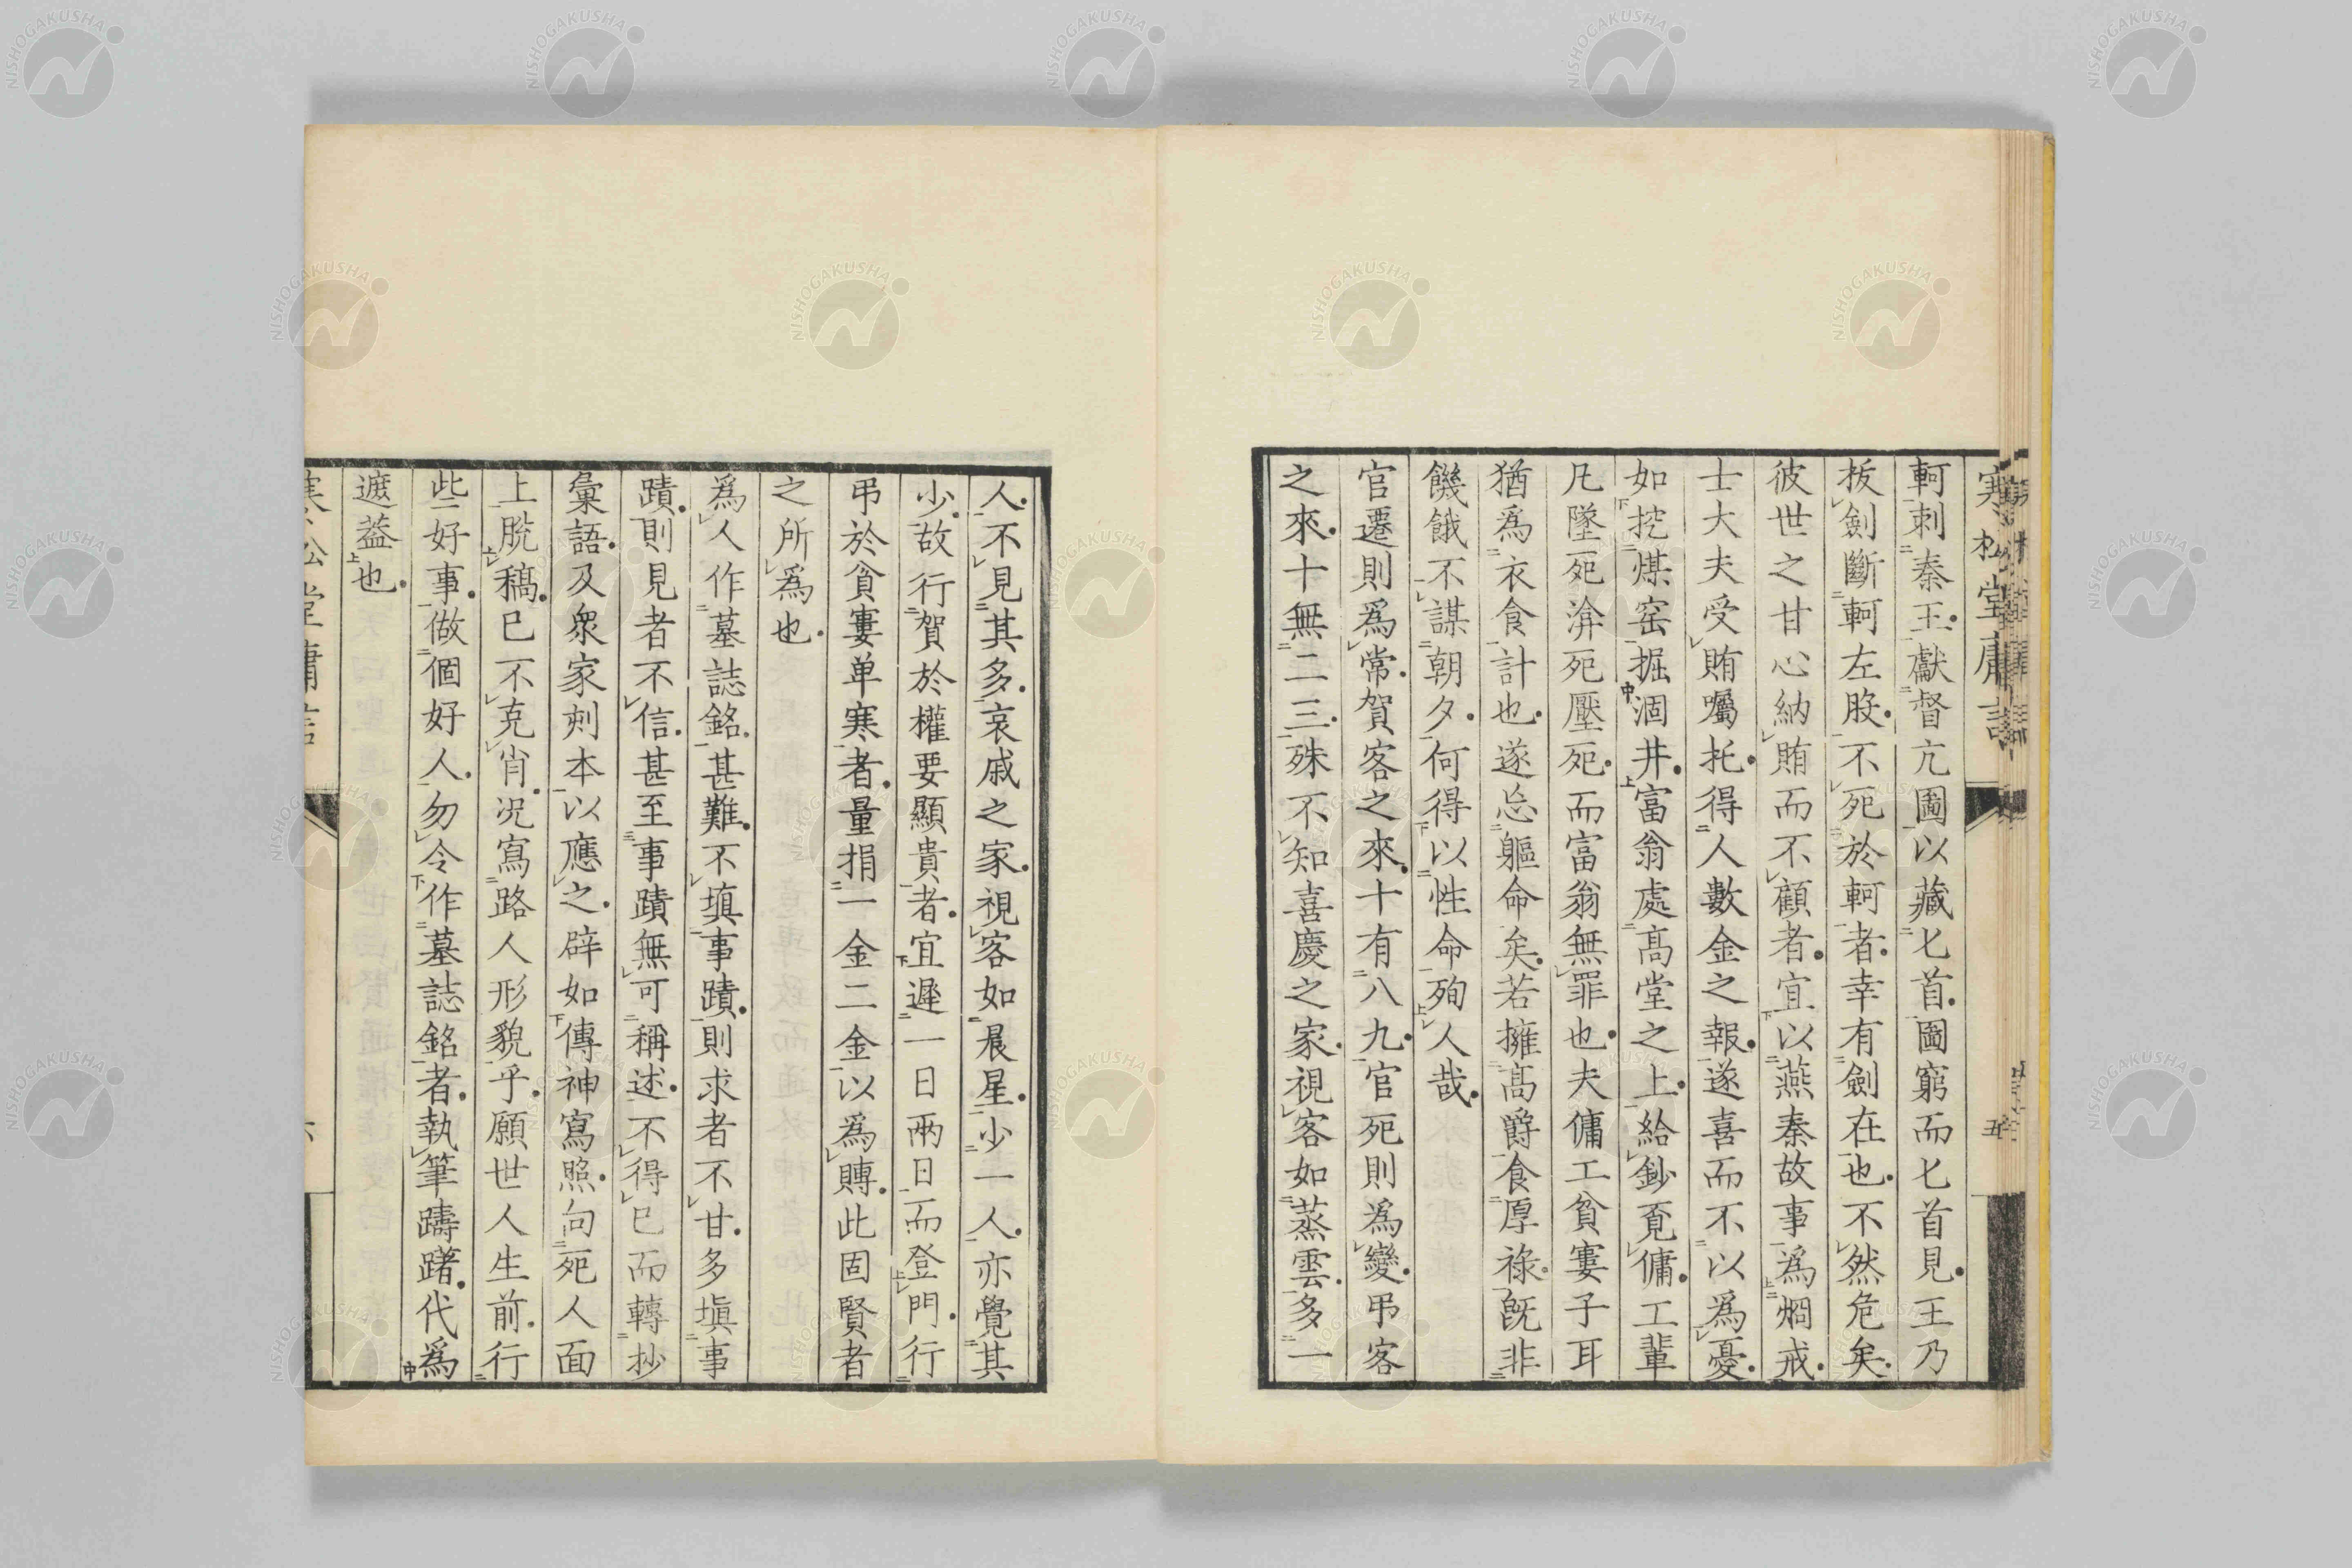 寒松堂庸言
五
軻刺秦王獻督亢圖以藏匕首圖窮而匕首見王乃
拔劍斷軻左股不死於軻者幸有劍在也不然危矣
彼世之甘心納賄而不顧者宜以燕秦故事爲烱戒
士大夫受賄囑托得人數金之報遂喜而不以爲憂
如挖煤窑掘涸井富翁處高堂之上給鈔覓傭工輩
凡墜死渰死壓死而富翁無罪也夫傭工貧婁子耳
猶爲衣食計也遂忘軀命矣若擁高爵食厚祿旣非
饑餓不謀朝夕何得以性命殉人哉
官遷則爲常賀客之來十有八九官死則爲變弔客
之來十無二三殊不知喜慶之家視客如蒸雲多一
人不見其多哀戚之家視客如晨星少一人亦覺其
少故行賀於權要顯貴者宜遲一日兩日而登門行
弔於貧寠单寒者量捐一金二金以爲賻此固賢者
之所爲也
爲人作墓誌銘甚難不塡事蹟則求者不甘多塡事
蹟則見者不信甚至事蹟無可稱述不得已而轉抄
彙語及衆家刻本以應之辟如傳神寫照向死人面
上脫稿已不克肖况寫路人形貌乎願世人生前行
些好事做個好人勿令作墓誌銘者執筆躊躇代爲
遮葢也
寒松堂庸言
六
NISHOGAKUSHA